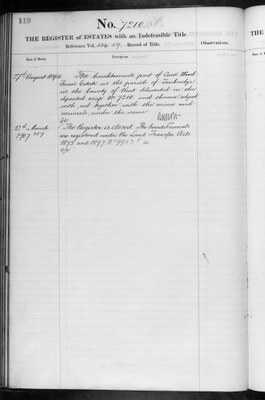 139
No. 7210
THE REGISTER of ESTATES with an Indefeasible Title.
Reference Vol. Record of Title.
Observations.
Date of Entry.
Description.
27th August 1890
The hereditaments part of Cave Wood
Farm Estate in the parish of
in the County of Kent delineated in the
deposited map No 7210, and thereon edged
with red together with the mines and
minerals under the same
13th March
1907
The Register is closed. The hereditaments
are registered under the Land Transfer Acts
1875 and 1897 No